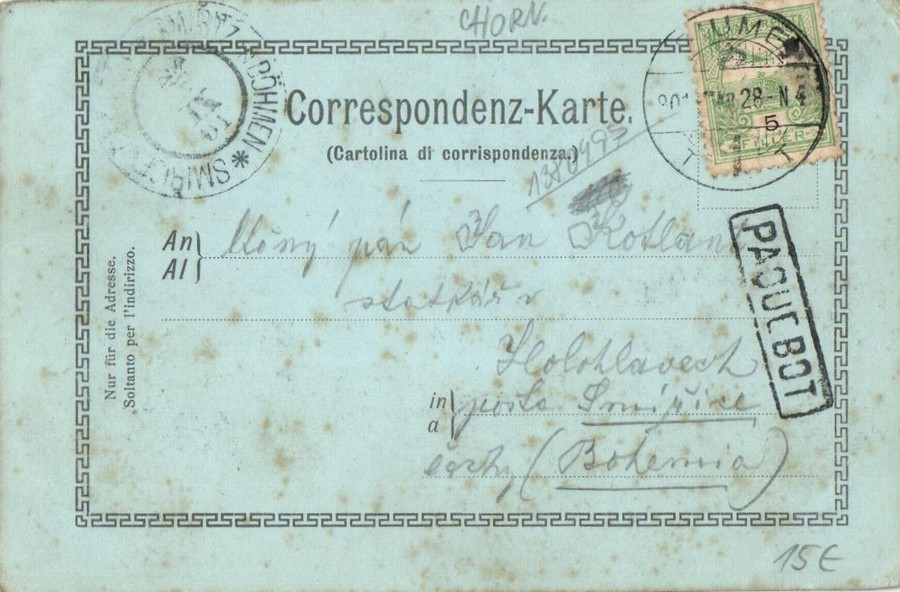 CHORV.
Correspondenz-Karte.
(Cartolina di corrispondenza.)
1380495
FIUME
901 28 N4
5
FILLER
BÖHMEN * SMIŘICE
PAQUEBOT
An
Al
pán Jan Kotland
statkář v
Holohlavech
in
a
pošta Smiřice
čechy (Bohemia)
Nur für die Adresse.
Soltanto per l'indirizzo.
15€